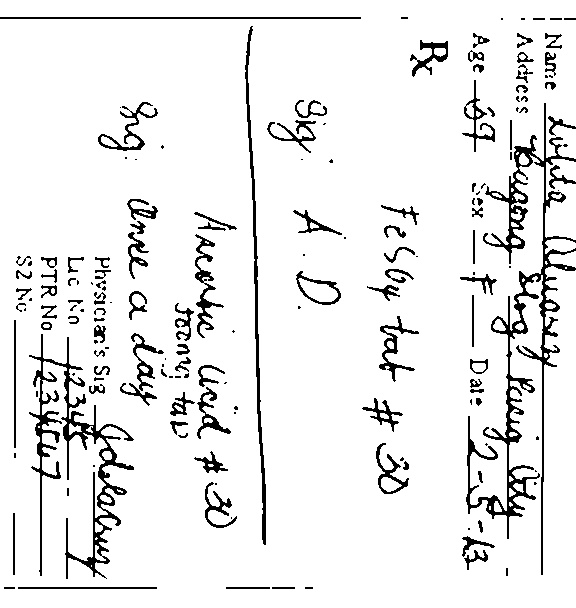 Name Lolita Alvarez
Address Bagong Ilog, Pasig City
Age 69 Sex F Date 2-5-13
Rx
FeSO4 tab # 30
Sig: A.D.
Ascorbic Acid # 30
500mg tab
Sig: Once a day
Physician's Sig Jdelacruz
Lic No 12345
PTR No 1234567
S2 No